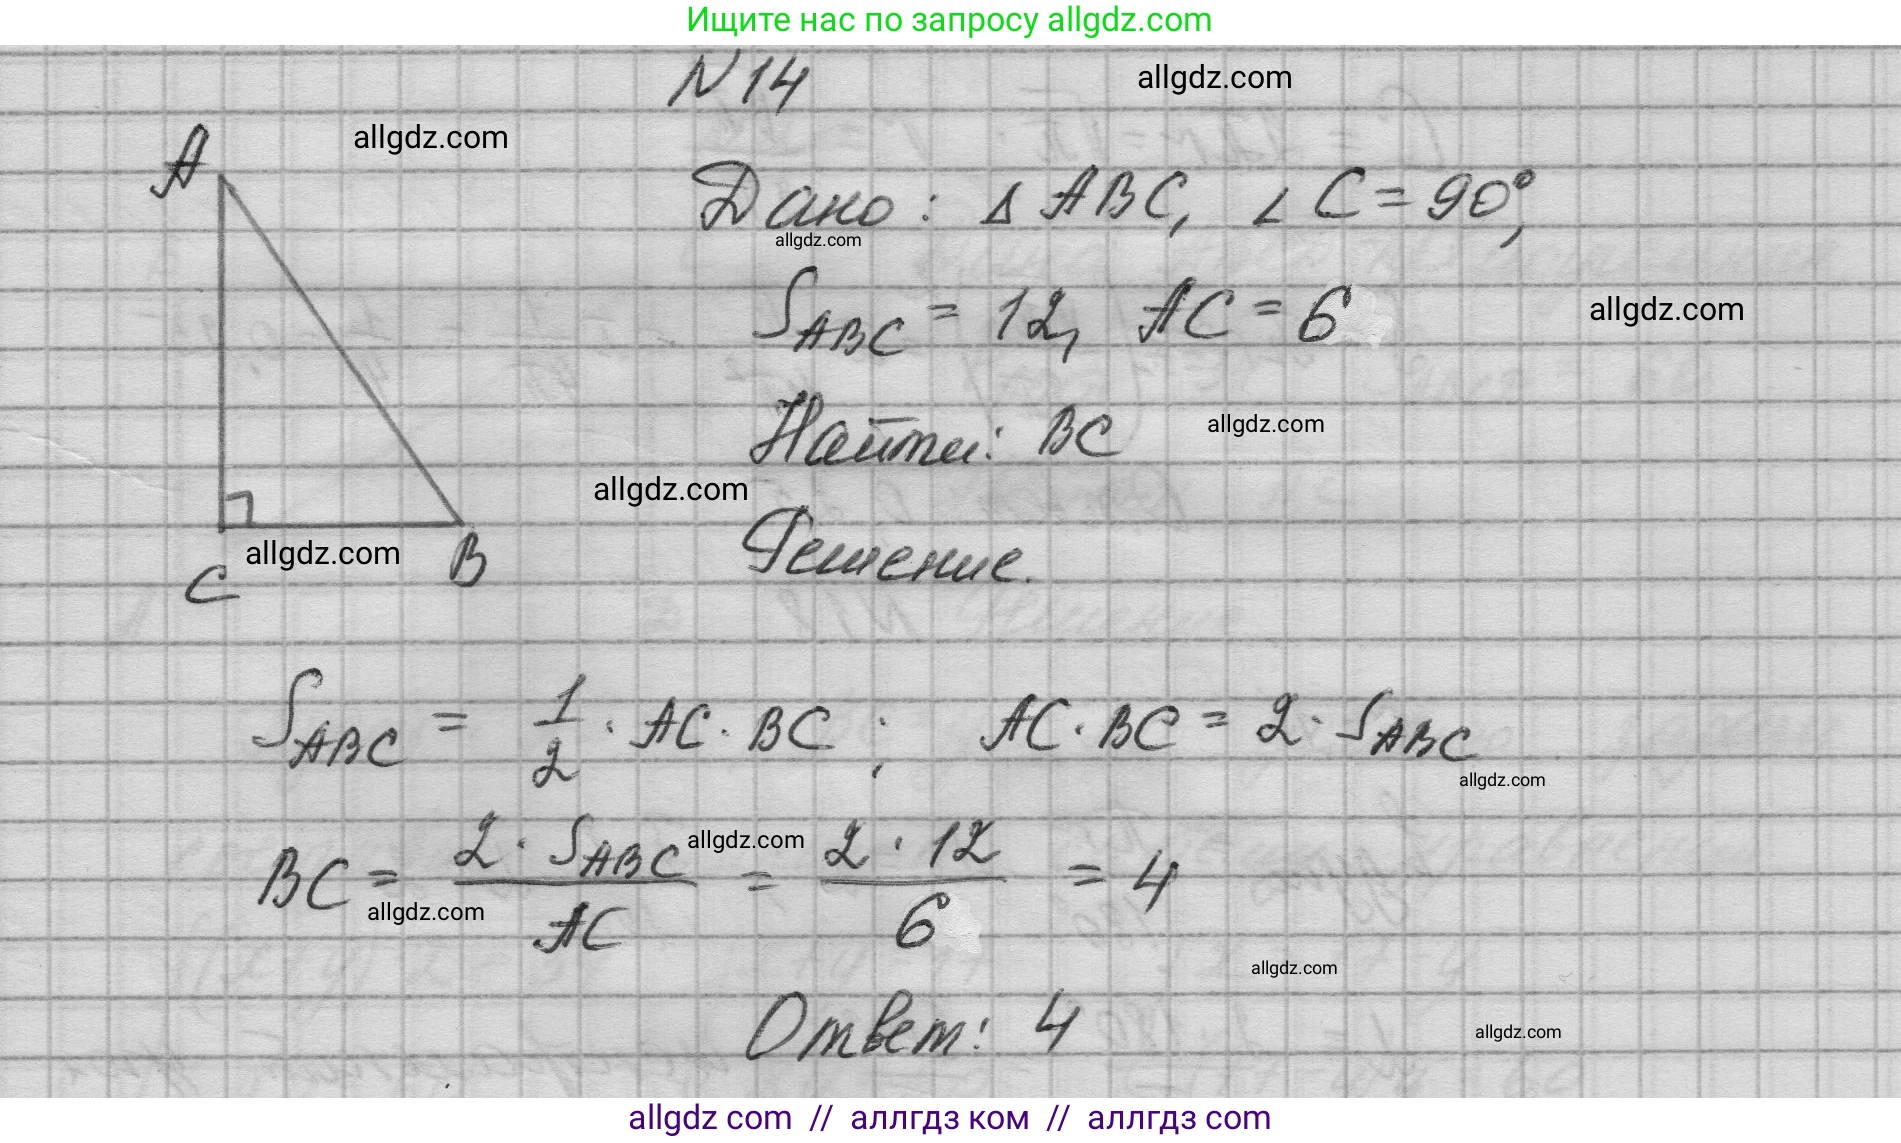 Ищите нас по запросу allgdz.com
N 14
allgdz.com
allgdz.com
A
Дано: Δ ABC, ∠ C = 90°,
allgdz.com
S_ABC = 12, AC = 6
allgdz.com
Найти: BC
allgdz.com
allgdz.com
Решение.
allgdz.com
C B
S_ABC = 1/2 · AC · BC ; AC · BC = 2 · S_ABC
allgdz.com
BC = 2 · S_ABC / AC = 2 · 12 / 6 = 4
allgdz.com
allgdz.com
allgdz.com
Ответ: 4
allgdz.com
allgdz com // аллгдз ком // аллгдз com